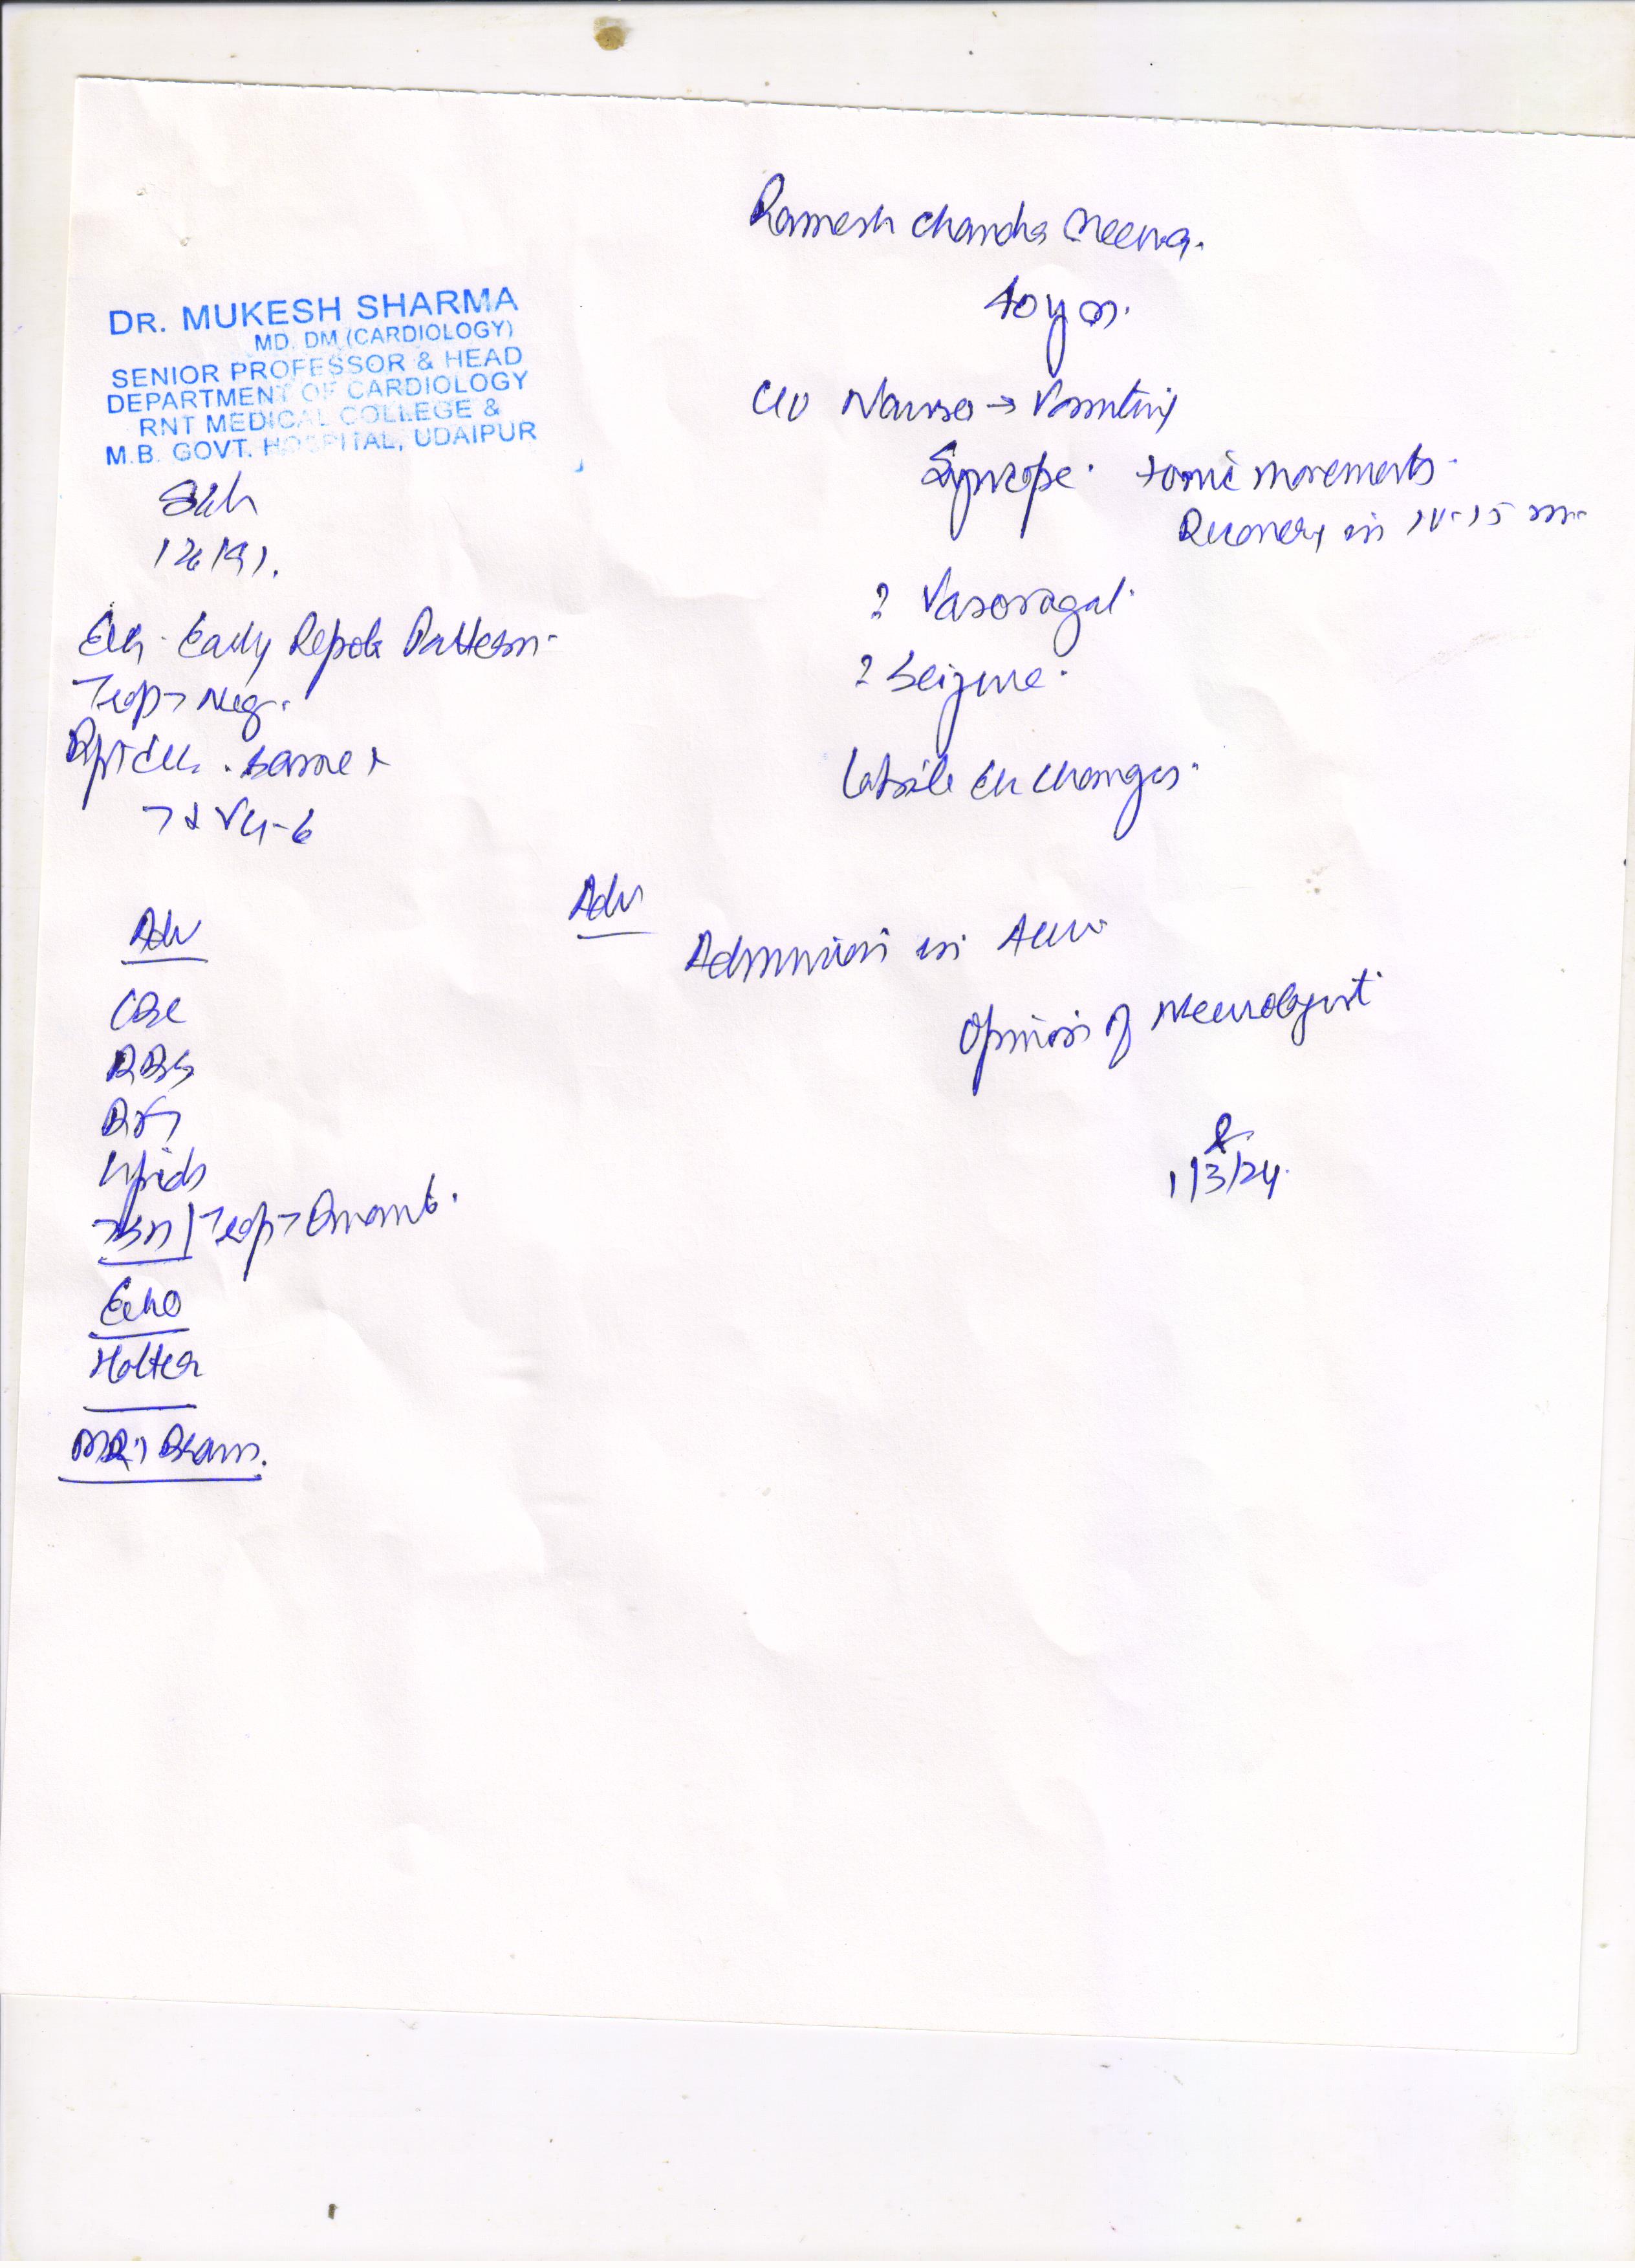 Ramesh Chandra Meena.
40 y m.
DR. MUKESH SHARMA
MD. DM (CARDIOLOGY)
SENIOR PROFESSOR & HEAD
DEPARTMENT OF CARDIOLOGY
RNT MEDICAL COLLEGE &
M.B. GOVT. HOSPITAL, UDAIPUR
C/o Nausea → Vomiting
Syncope. tonic movements.
Recovery in 10-15 m.
? Vasovagal.
? Seizure.
Labile ECG changes.
ECG. Early Repole Pattern.
Trop T Neg.
Rpt ECG. same +
T↓ V4-6
Adv
Admission in
Opinion of Neurologist
1/3/24.
Adv
CBC
RBS
RFT
Lipids
TSH / Trop T Quant.
Echo
Holter
MRI Brain.